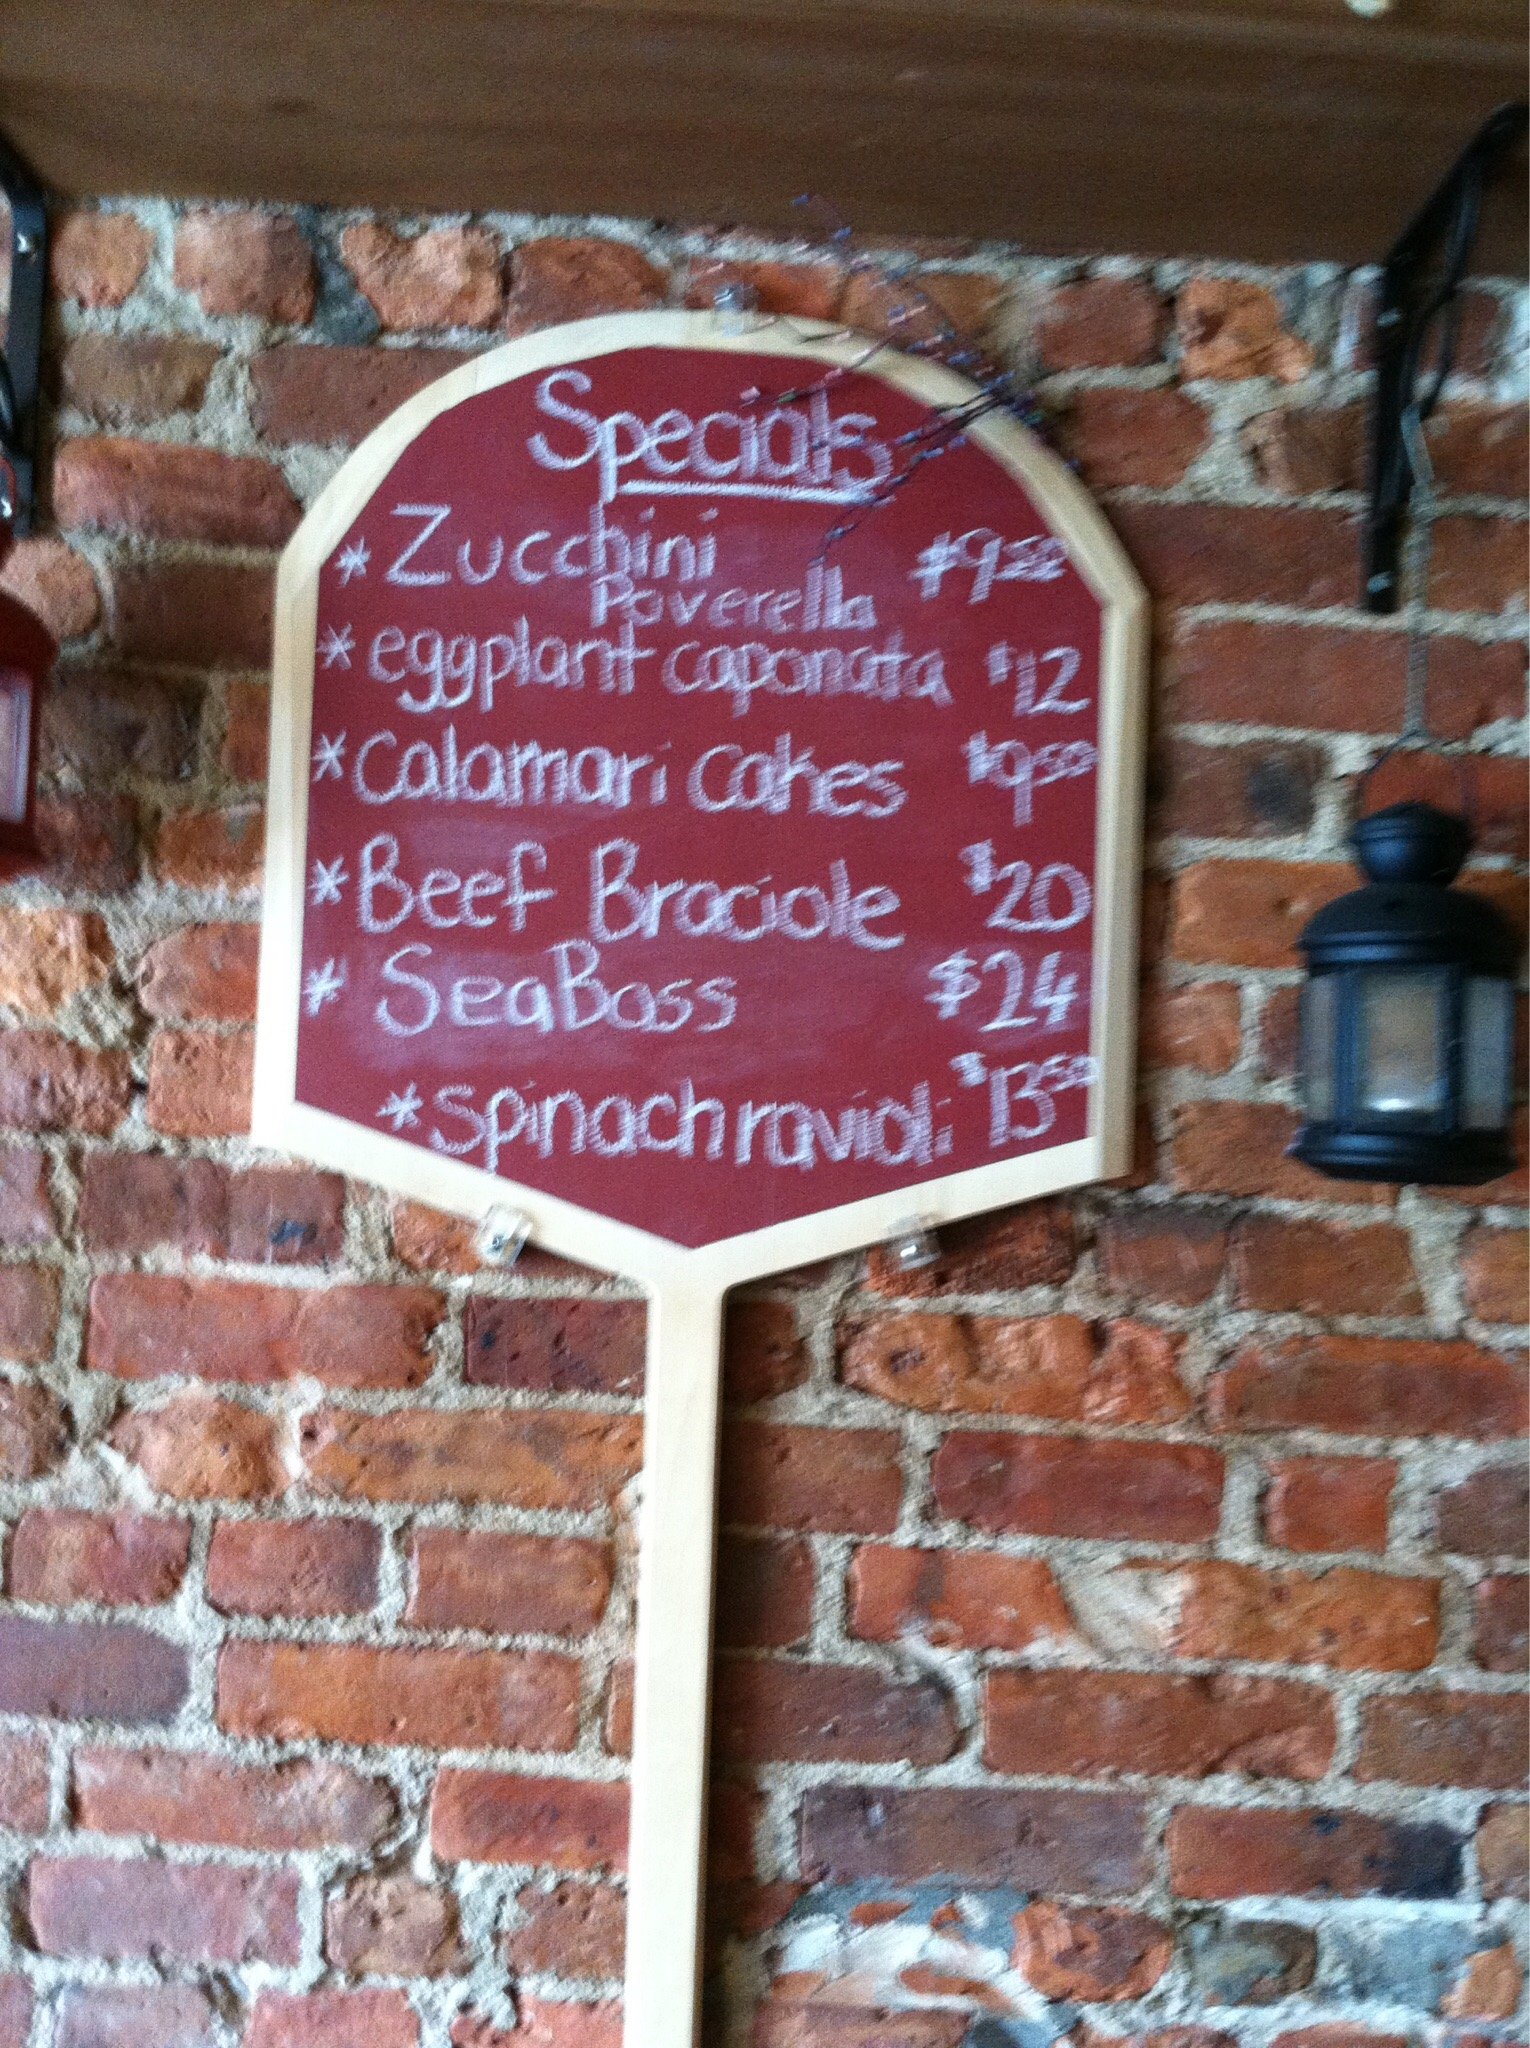 Specials
* Zucchini $9.50
Poverella
* eggplant caponata $12
* Calamari Cakes $9.50
* Beef Braciole $20
* SeaBass $24
* spinach ravioli $13.50